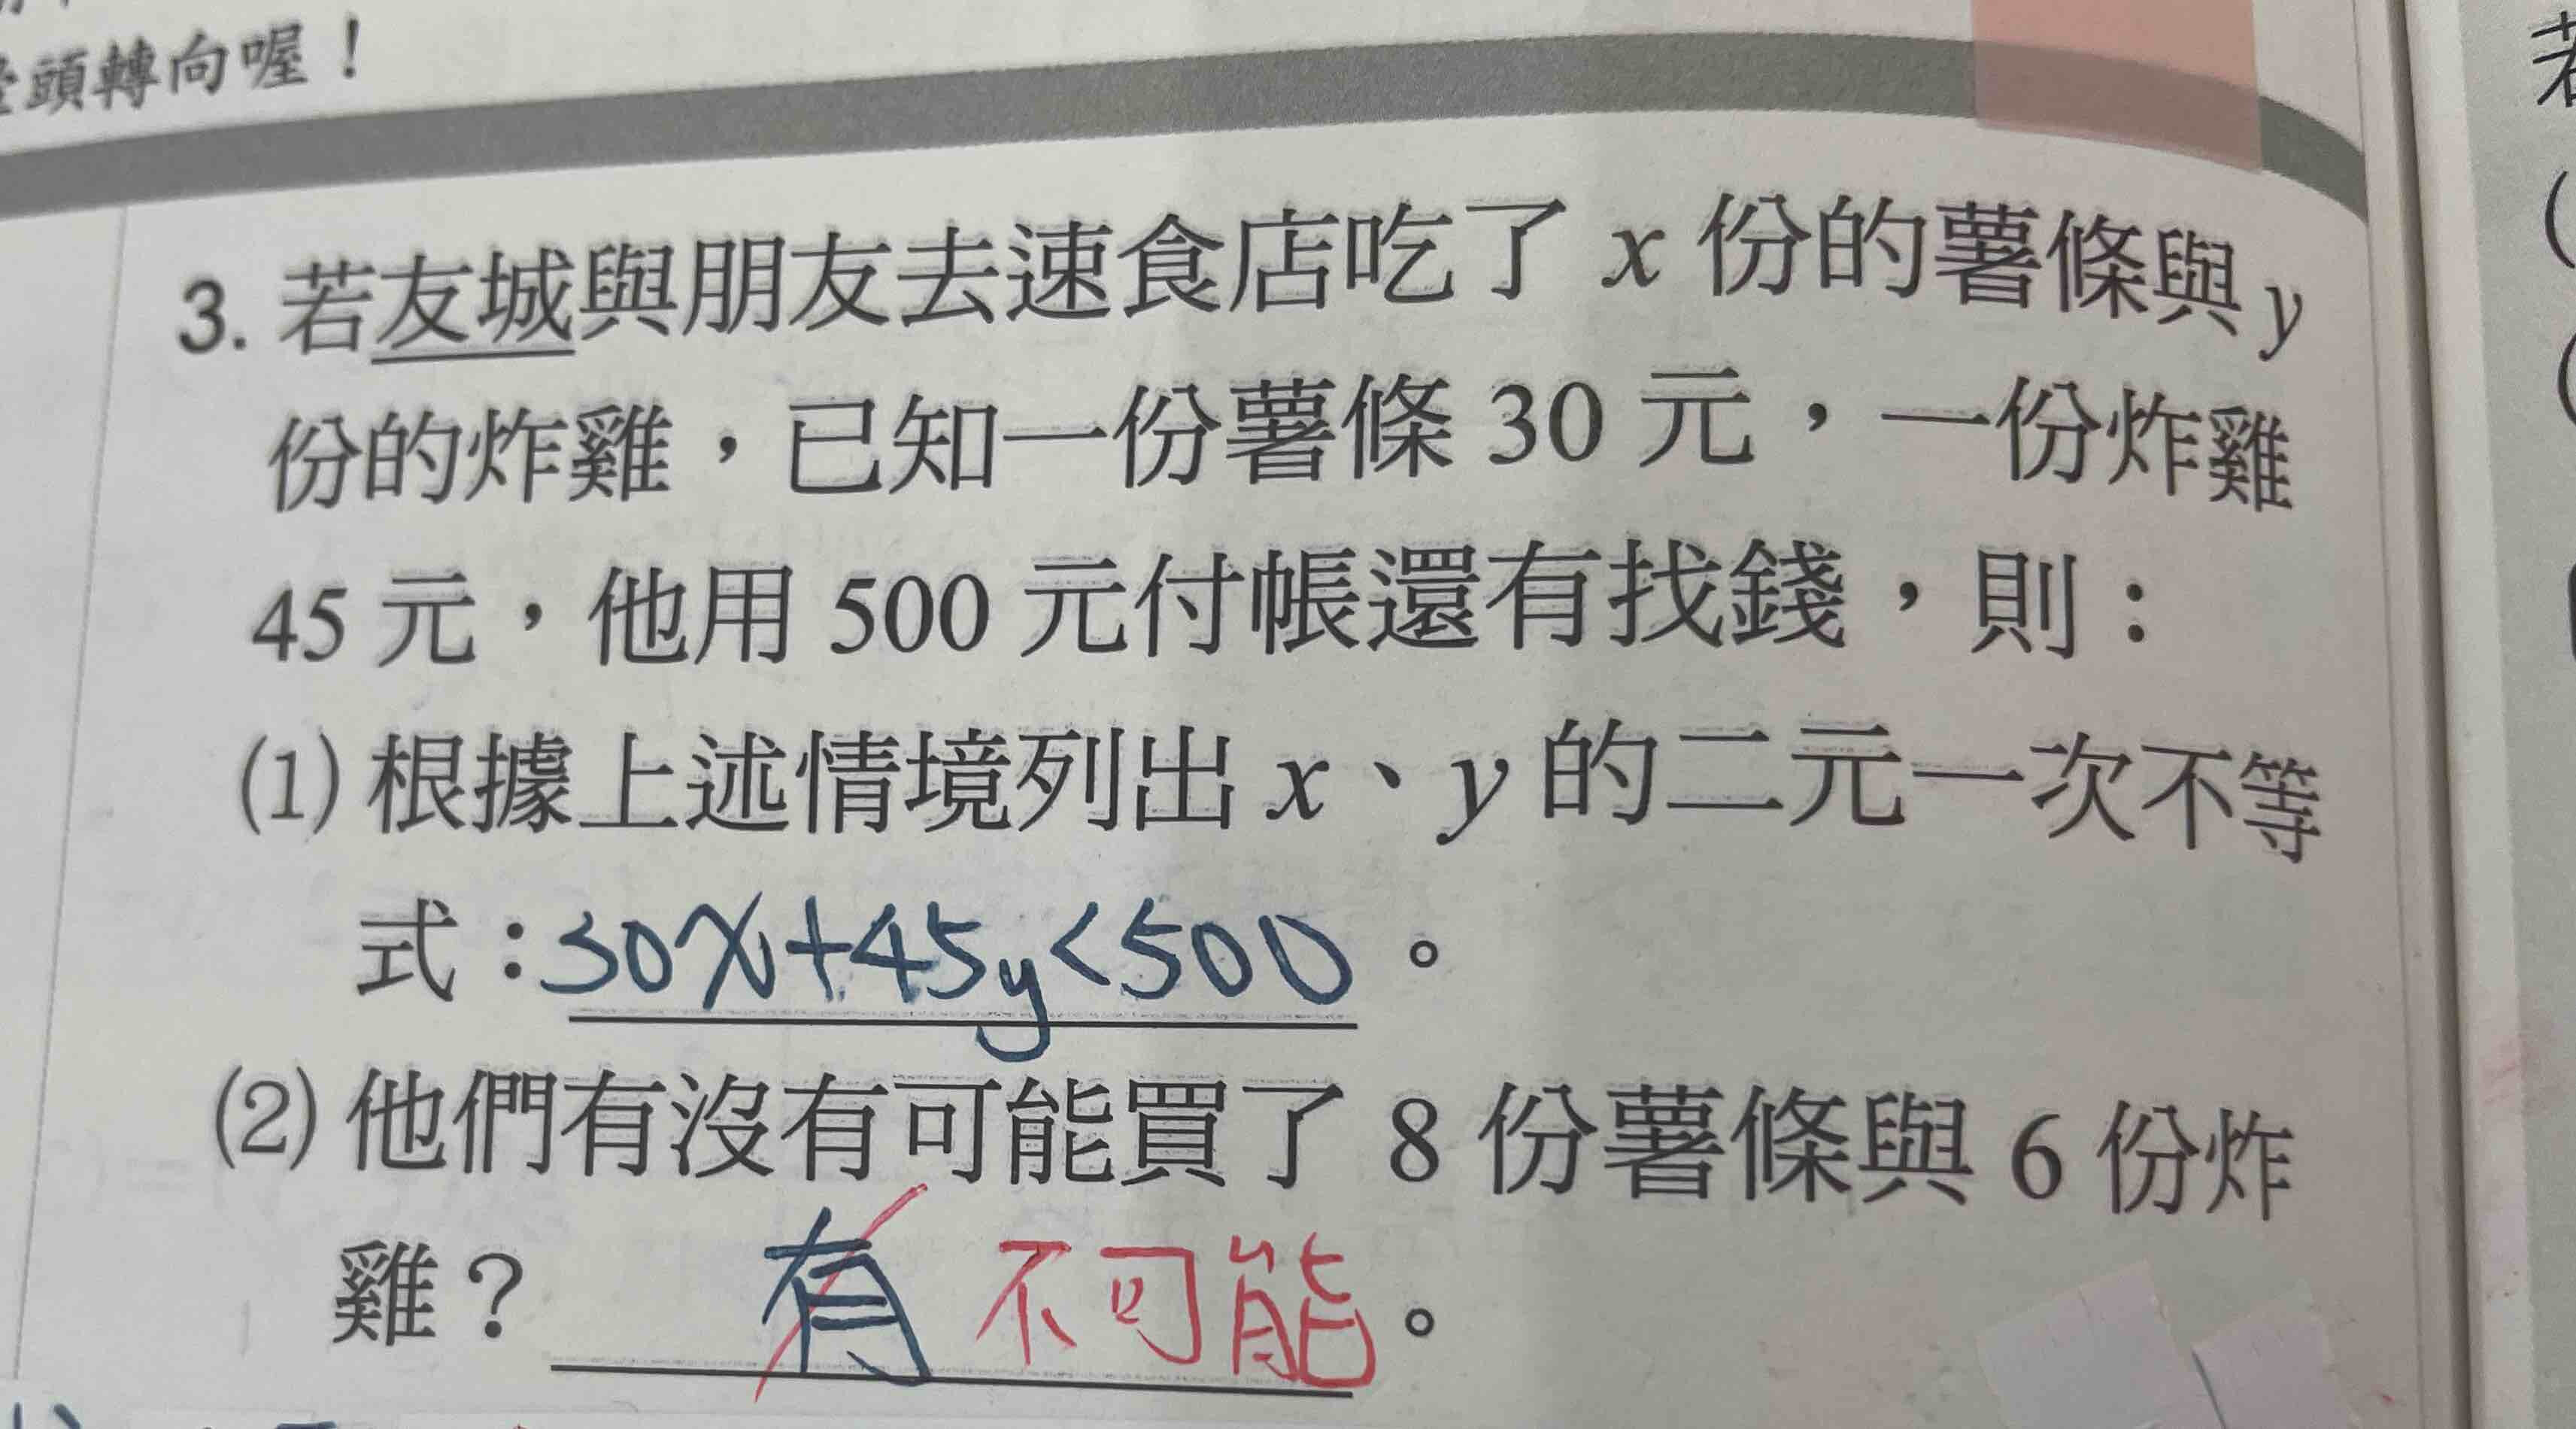 頭轉向喔！
3. 若友城與朋友去速食店吃了 x 份的薯條與 y
份的炸雞，已知一份薯條 30 元，一份炸雞
45 元，他用 500 元付帳還有找錢，則：
(1) 根據上述情境列出 x、y 的二元一次不等
式：30x+45y<500。
(2) 他們有沒有可能買了 8 份薯條與 6 份炸
雞？有 不可能。